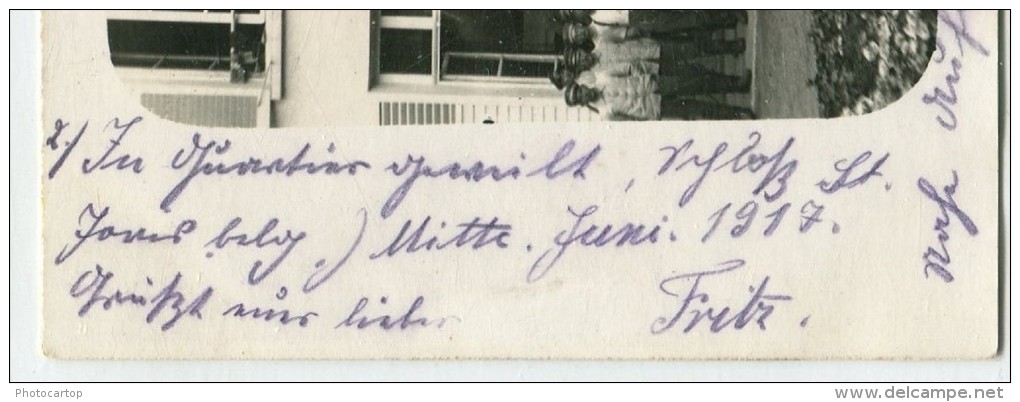 2.) In Quartier geweilt, Schloß St.
Joris belg.) Mitte. Juni. 1917.
Grüßt euer lieber Fritz.
Photocartop
www.delcampe.net